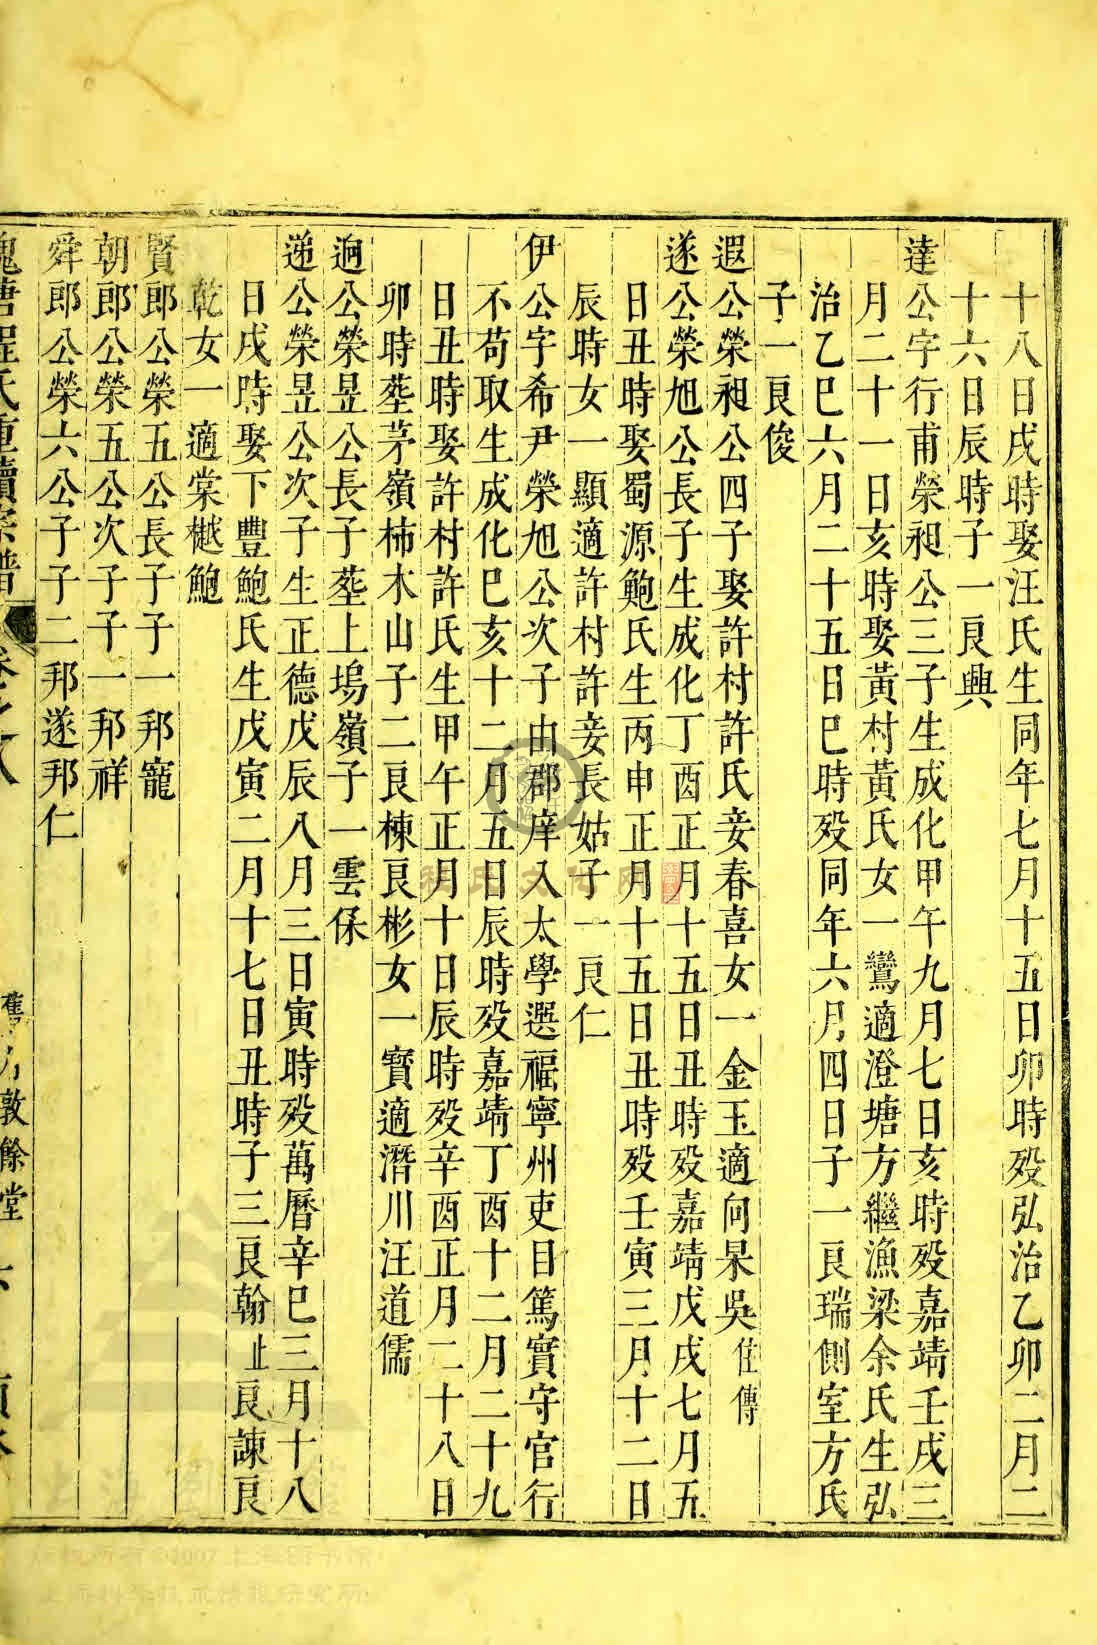 十八日戌時娶汪氏生同年七月十五日卯時殁弘治乙卯二月二
十六日辰時子一良興
達公字行甫榮昶公三子生成化甲午九月七日亥時殁嘉靖壬戌三
月二十一日亥時娶黃村黃氏女一鸞適澄塘方繼漁梁余氏生弘
治乙巳六月二十五日巳時殁同年六月四日子一良瑞側室方氏
子一良俊
遐公榮昶公四子娶許村許氏妾春喜女一金玉適向杲吳佳傳
遂公榮旭公長子生成化丁酉正月十五日丑時殁嘉靖戊戌七月五
日丑時娶蜀源鮑氏生丙申正月十五日丑時殁壬寅三月十二日
辰時女一顯適許村許妾長姑子一良仁
伊公字希尹榮旭公次子由郡庠入太學選福寧州吏目篤實守官行
不苟取生成化己亥十二月五日辰時殁嘉靖丁酉十二月二十九
日丑時娶許村許氏生甲午正月十日辰時殁辛酉正月二十八日
卯時塟茅嶺柿木山子二良棟良彬女一寳適潛川汪道儒
逈公榮昱公長子塟上塢嶺子一雲保
递公榮昱公次子生正德戊辰八月三日寅時殁萬曆辛巳三月十八
日戌時娶下豐鮑氏生戊寅二月十七日丑時子三良翰止良諫良
乾女一適棠樾鮑
賢郎公榮五公長子子一邦寵
朝郎公榮五公次子子一邦祥
舜郎公榮六公子子二邦遂邦仁
槐塘程氏重續宗譜 卷之八
敦餘堂
程氏文化网
版权所有©2007上海图书馆